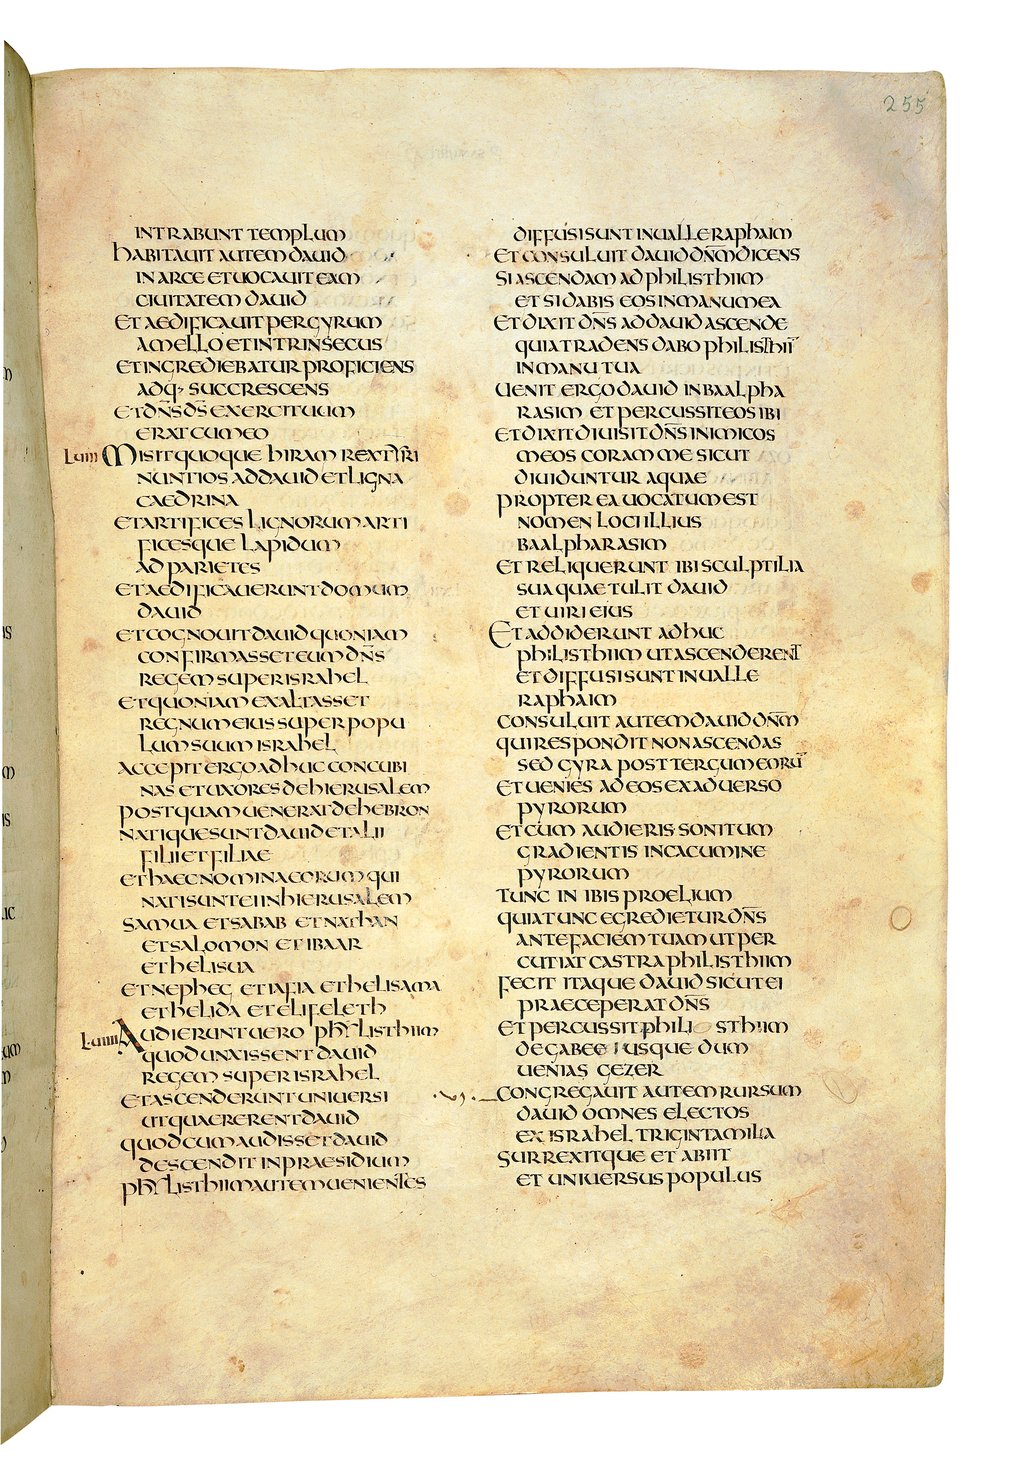 255
INTRABUNT TEMPLUM
HABITAUIT AUTEM DAUID
IN ARCE ET UOCAUIT EAM
CIUITATEM DAUID
ET AEDIFICAUIT PER GYRUM
A MELLO ET INTRINSECUS
ET INGREDIEBATUR PROFICIENS
ADQ· SUCCRESCENS
ET DN̅S D̅S EXERCITUUM
ERAT CUM EO
LUIII MISIT QUOQUE HIRAM REX TYRI
NUNTIOS AD DAUID ET LIGNA
CAEDRINA
ET ARTIFICES LIGNORUM ARTI
FICESQUE LAPIDUM
AD PARIETES
ET AEDIFICAUERUNT DOMUM
DAUID
ET COGNOUIT DAUID QUONIAM
CONFIRMASSET EUM DN̅S
REGEM SUPER ISRAHEL
ET QUONIAM EXALTASSET
REGNUM EIUS SUPER POPU
LUM SUUM ISRAHEL
ACCEPIT ERGO ADHUC CONCUBI
NAS ET UXORES DE HIERUSALEM
POSTQUAM UENERAT DE HEBRON
NATIQUE SUNT DAUID ET ALII
FILII ET FILIAE
ET HAEC NOMINA EORUM QUI
NATI SUNT EI IN HIERUSALEM
SAMUA ET SABAB ET NATHAN
ET SALOMON ET IBAAR
ET HELISUA
ET NEPHEG ET IAFIA ET HELISAMA
ET HELIDA ET ELIFELETH
LUIIII AUDIERUNT UERO PHILISTHIIM
QUOD UNXISSENT DAUID
REGEM SUPER ISRAHEL
ET ASCENDERUNT UNIUERSI
UT QUAERERENT DAUID
QUOD CUM AUDISSET DAUID
DESCENDIT IN PRAESIDIUM
PHILISTHIIM AUTEM UENIENTES
DIFFUSI SUNT IN UALLE RAPHAIM
ET CONSULUIT DAUID DN̅M DICENS
SI ASCENDAM AD PHILISTHIIM
ET SI DABIS EOS IN MANU MEA
ET DIXIT DN̅S AD DAUID ASCENDE
QUIA TRADENS DABO PHILISTHII̅
IN MANU TUA
UENIT ERGO DAUID IN BAALPHA
RASIM ET PERCUSSIT EOS IBI
ET DIXIT DIUISIT DN̅S INIMICOS
MEOS CORAM ME SICUT
DIUIDUNTUR AQUAE
PROPTEREA UOCATUM EST
NOMEN LOCI ILLIUS
BAALPHARASIM
ET RELIQUERUNT IBI SCULPTILIA
SUA QUAE TULIT DAUID
ET UIRI EIUS
ET ADDIDERUNT ADHUC
PHILISTHIIM UT ASCENDERENT
ET DIFFUSI SUNT IN UALLE
RAPHAIM
CONSULUIT AUTEM DAUID DN̅M
QUI RESPONDIT NON ASCENDAS
SED GYRA POST TERGUM EORU̅
ET UENIES AD EOS EX ADUERSO
PYRORUM
ET CUM AUDIERIS SONITUM
GRADIENTIS IN CACUMINE
PYRORUM
TUNC INIBIS PROELIUM
QUIA TUNC EGREDIETUR DN̅S
ANTE FACIEM TUAM UT PER
CUTIAT CASTRA PHILISTHIIM
FECIT ITAQUE DAUID SICUT EI
PRAECEPERAT DN̅S
ET PERCUSSIT PHILI STHIIM
DE GABEE USQUE DUM
UENIAS GEZER
CONGREGAUIT AUTEM RURSUM
DAUID OMNES ELECTOS
EX ISRAHEL TRIGINTA MILIA
SURREXITQUE ET ABIIT
ET UNIUERSUS POPULUS